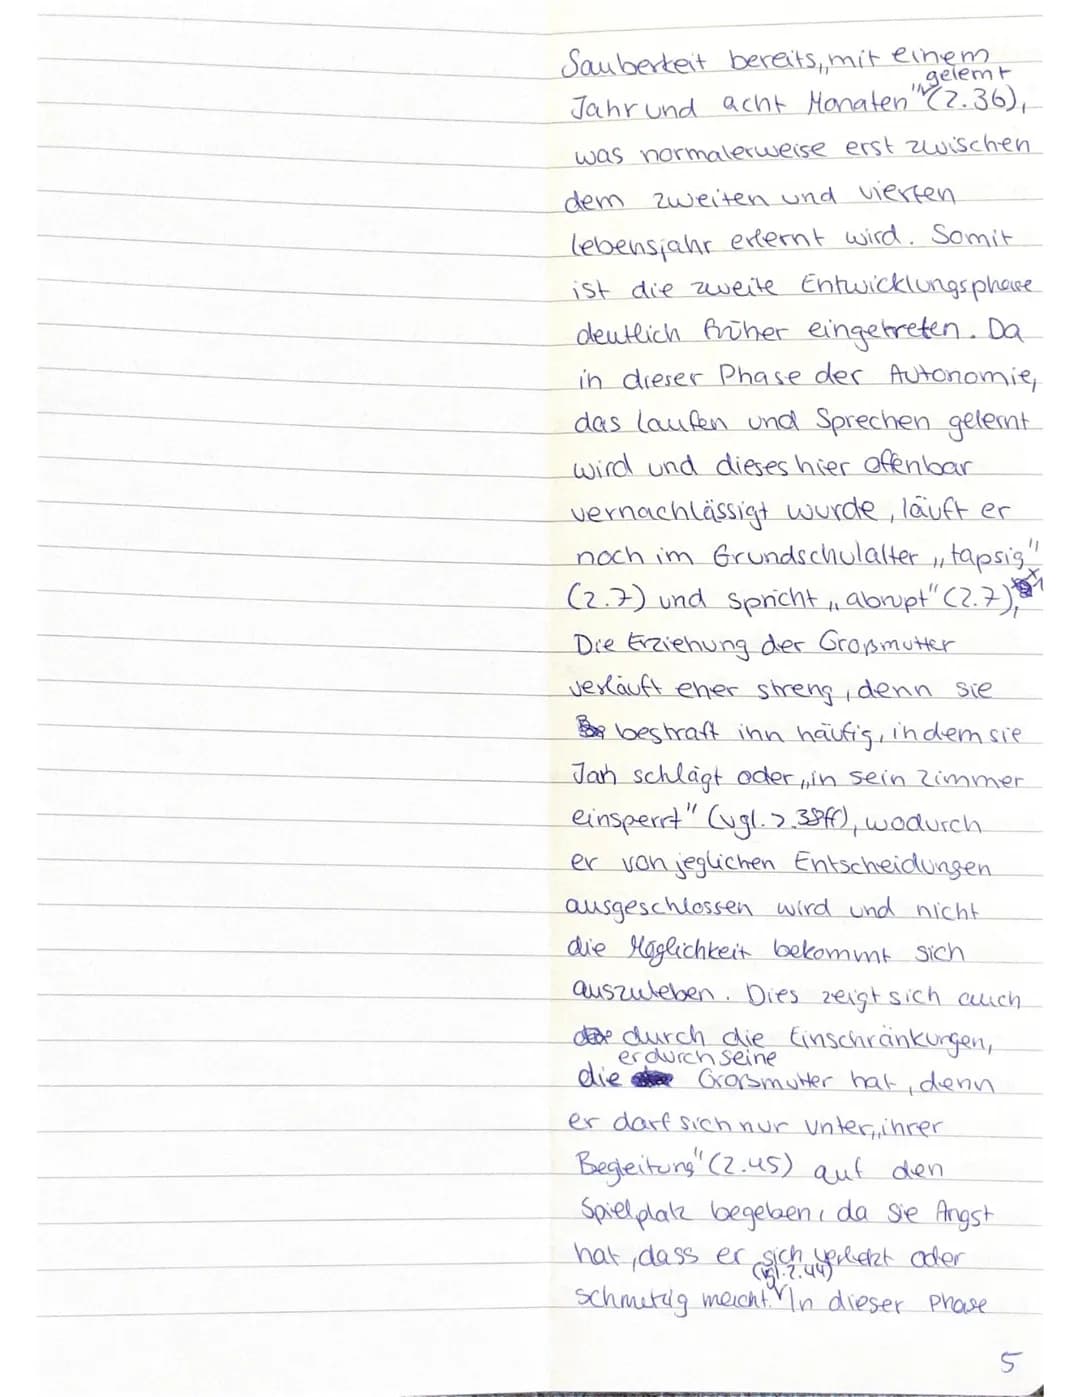 Sauberkeit bereits „mit einem
gelernt
Jahr und acht Monaten" (Z.36),
was normalerweise erst zwischen
dem zweiten und vierten
Lebensjahr erlernt wird. Somit
ist die zweite Entwicklungsphase
deutlich früher eingetreten. Da
in dieser Phase der Autonomie,
das Laufen und Sprechen gelernt
wird und dieses hier offenbar
vernachlässigt wurde, läuft er
noch im Grundschulalter „tapsig"
(Z.7) und spricht „abrupt" (Z.7),
Die Erziehung der Großmutter
verläuft eher streng, denn sie
bestraft ihn häufig, indem sie
Jan schlägt oder „in sein Zimmer
einsperrt" (vgl. Z.38ff), wodurch
er von jeglichen Entscheidungen
ausgeschlossen wird und nicht
die Möglichkeit bekommt sich
auszuleben. Dies zeigt sich auch
durch die Einschränkungen,
er durch seine
die Grossmutter hat, denn
er darf sich nur unter „ihrer
Begleitung" (Z.45) auf den
Spielplatz begeben, da sie Angst
hat, dass er sich verletzt oder
(vgl. Z.44)
schmutzig macht. In dieser Phase
5